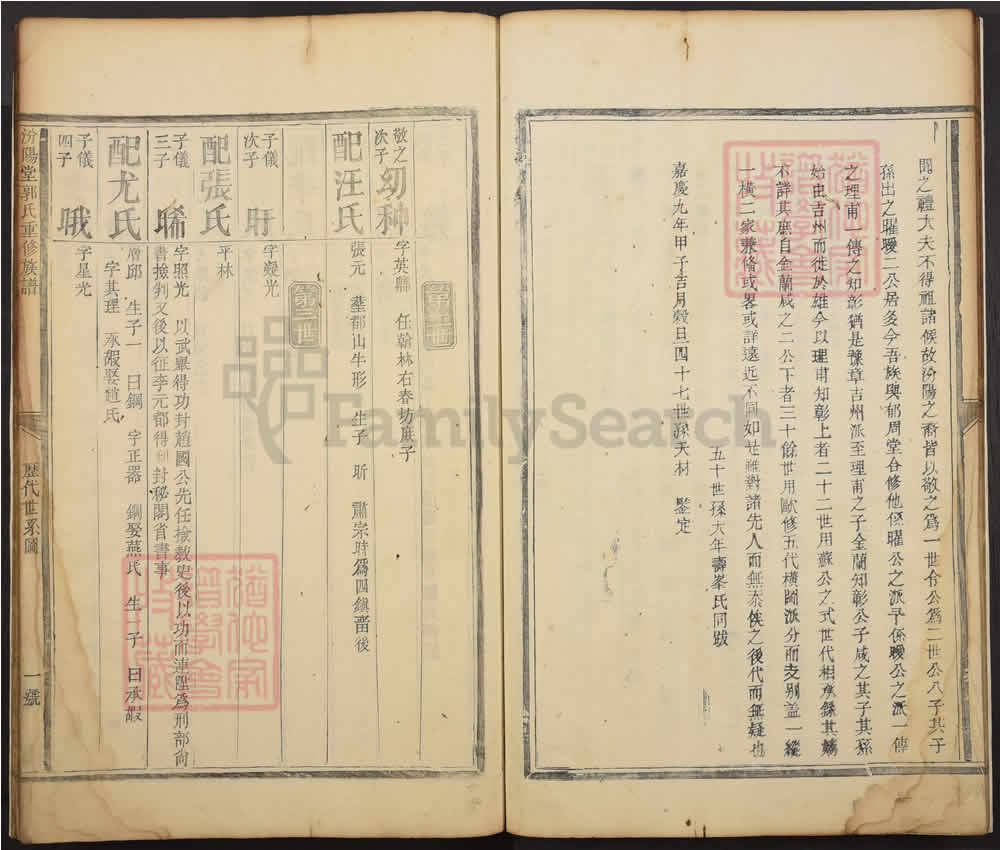 聞之禮大夫不得祖諸侯故汾陽之裔皆以敬之為一世令公為二世公八子其子
孫出之曜曖二公居多今吾族與郁周堂合修他係曜公之派予係曖公之派一傳
之理甫一傳之知彰猶是豫章吉州派至理甫之子金蘭知彰公子咸之其子其孫
始由吉州而徙於雄今以理甫知彰上者二十二世用蘇公之式世代相承錄其嫡
不詳其庶自金蘭咸之二公下者三十餘世用歐修五代橫圖派分而支别盖一縱
一橫二家兼脩或畧或詳遠近不同如是雖對諸先人而無忝俟之後代而無疑也
五十世孫大年壽峯氏同跋
嘉慶九年甲子吉月穀旦四十七世孫天材 鑒定
敬之次子 幼种 字英縣 任翰林右春坊庶子
配汪氏
張元 塟都山牛形 生子 昕 肅宗時爲四鎮畱後
第三世
子儀次子 旰 字燮光
配張氏 平林
子儀三子 晞 字照光 以武舉得功封趙國公先任檢教史後以功而連陞爲刑部尚
書撿判又後以征李元都得封秘閣省書事
配尤氏 層邱 生子一 曰鋼 字正器 鋼娶燕氏 生一子 曰承嘏
字其理 承嘏娶道氏
子儀四子 㬶 字星光
汾陽堂郭氏重修族譜 歷代世系圖 一號
FamilySearch